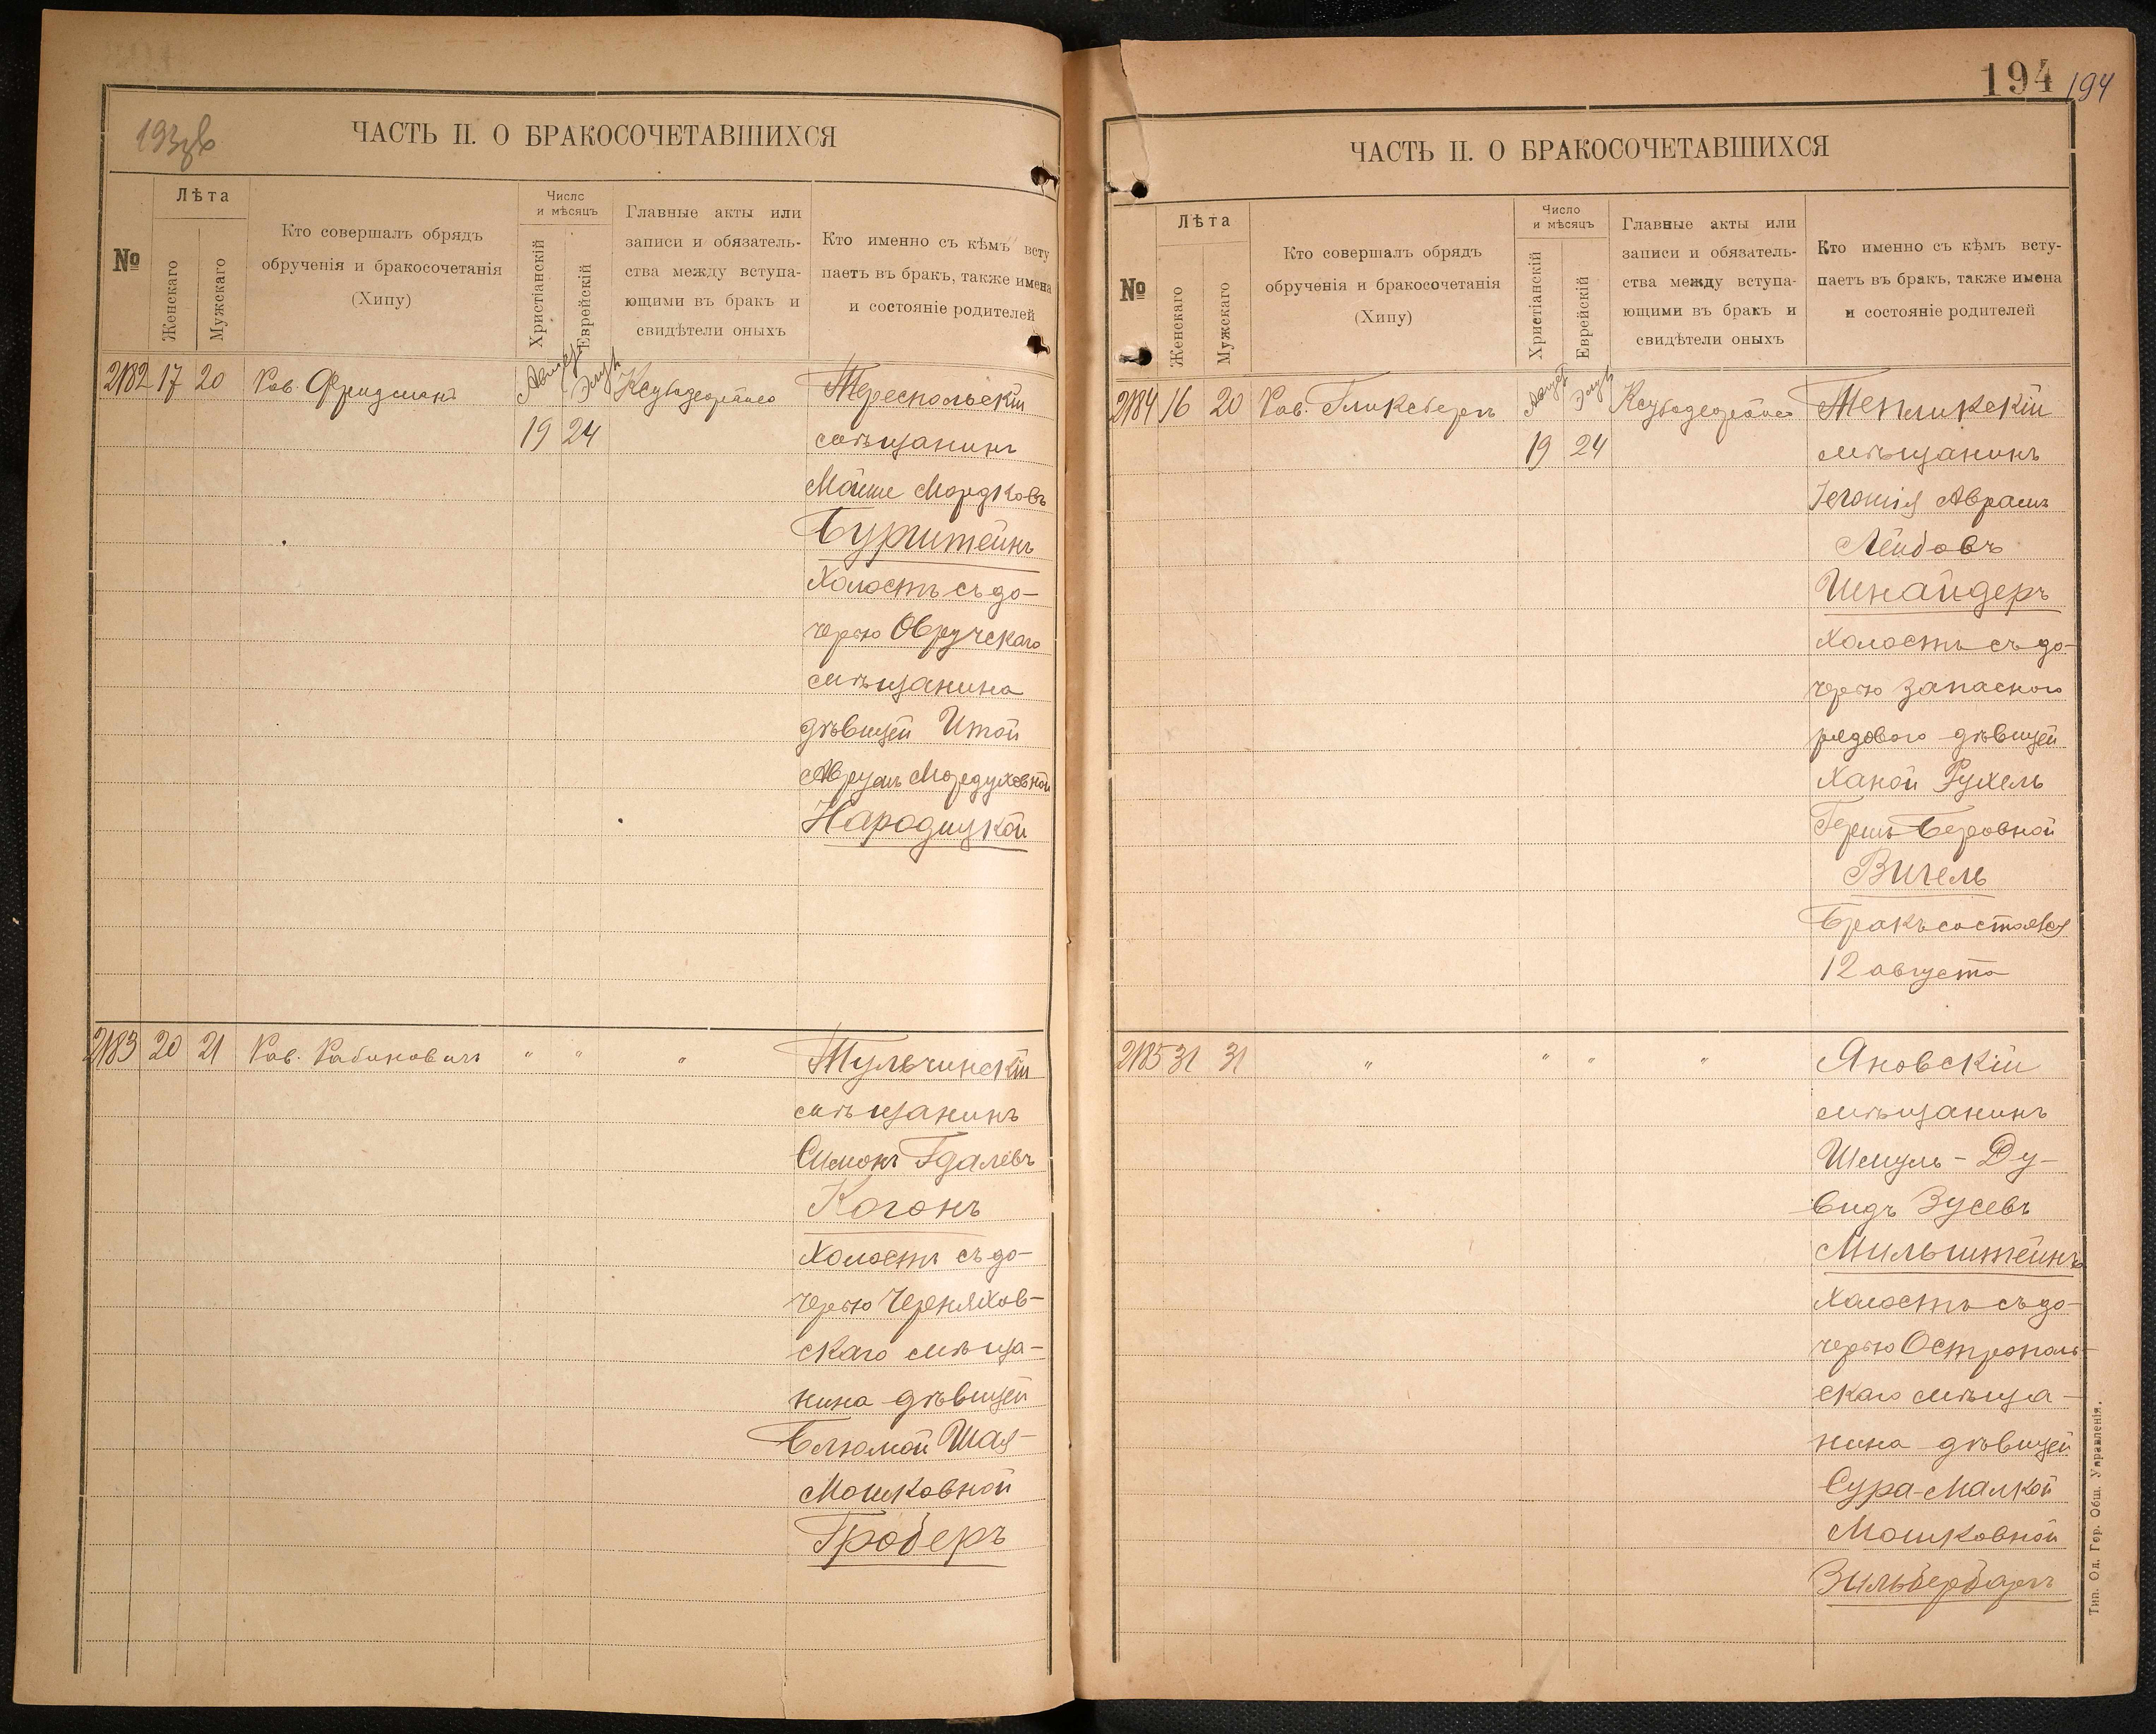 193об
ЧАСТЬ II. О БРАКОСОЧЕТАВШИХСЯ
№
Лѣта
Женскаго
Мужскаго
Кто совершалъ обрядъ
обрученія и бракосочетанія
(Хипу)
Число
и мѣсяцъ
Христіанскій
Еврейскій
Главные акты или
записи и обязатель-
ства между вступа-
ющими въ бракъ и
свидѣтели оныхъ
Кто именно съ кѣмъ всту
паетъ въ бракъ, также имена
и состояніе родителей
2182 17 20 Рав. Фридманъ Август Элул
19 24
Тереспольскій
мѣщанинъ
Мойше Мордковъ
Бурштейнъ
Холостъ съ до-
черью Овручскаго
мѣщанина
дѣвицей Итой
Аврум Мордуховной
Народицкой
2183 20 21 Рав. Рабиновичъ " " "
Тульчинскій
мѣщанинъ
Симонъ Гдалевъ
Коганъ
Холостъ съ до-
черью Черняхов-
скаго мѣща-
нина дѣвицей
Блюмой Шая-
Мошковной
Гроберъ
194 194
ЧАСТЬ II. О БРАКОСОЧЕТАВШИХСЯ
№
Лѣта
Женскаго
Мужскаго
Кто совершалъ обрядъ
обрученія и бракосочетанія
(Хипу)
Число
и мѣсяцъ
Христіанскій
Еврейскій
Главные акты или
записи и обязатель-
ства между вступа-
ющими въ бракъ и
свидѣтели оныхъ
Кто именно съ кѣмъ всту-
паетъ въ бракъ, также имена
и состояніе родителей
2184 16 20 Рав. Гликсбергъ Август Элул
19 24
Тепликскій
мѣщанинъ
Аврамъ
Лейбовъ
Шнайдеръ
Холостъ съ до-
черью запасного
рядового дѣвицей
Ханой Рухель
Гершъ Беровной
Вигель
Бракъ состоялся
12 августа
2185 31 31 " " " "
Яновскій
мѣщанинъ
Шмуль-Ду-
видъ Зусевъ
Мильштейнъ
Холостъ съ до-
черью Острополь-
скаго мѣща-
нина дѣвицей
Сура-Малкой
Мошковной
Зильбербаргъ
Тип. Од. Гор. Общ. Управленія.